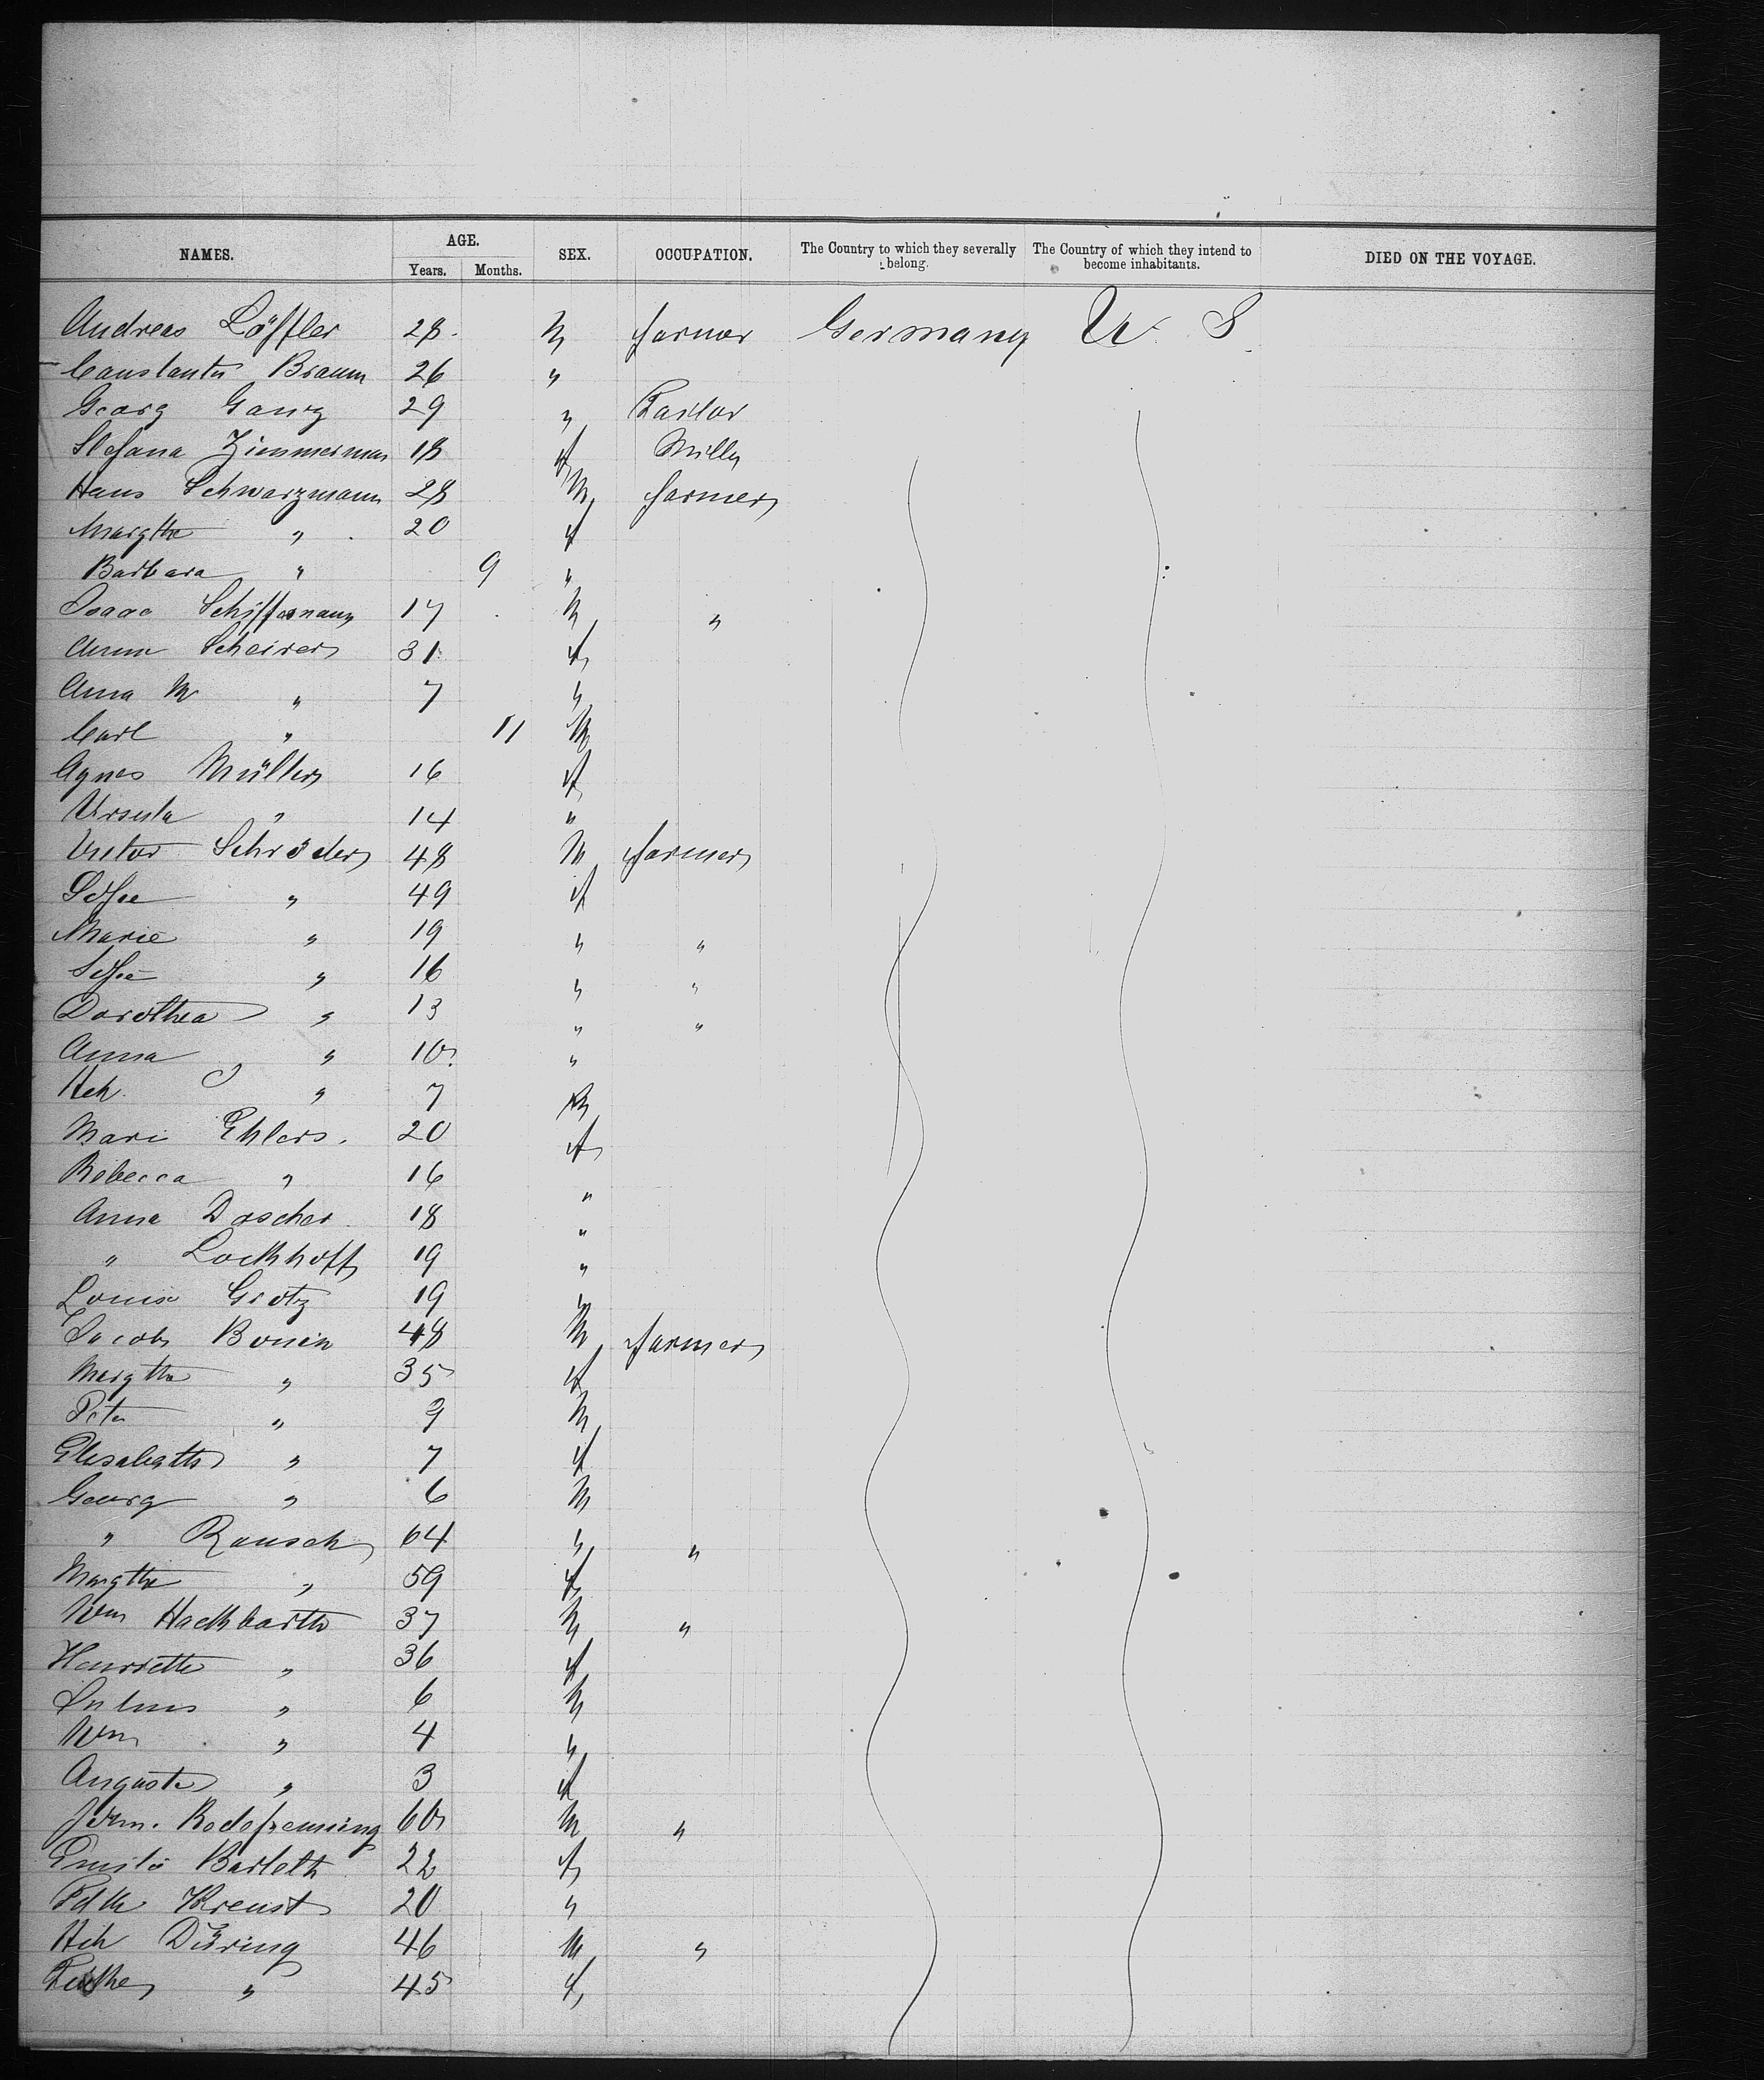 NAMES. AGE. Years. Months. SEX. OCCUPATION. The Country to which they severally belong. The Country of which they intend to become inhabitants. DIED ON THE VOYAGE.
Andreas Löffler 28 M farmer Germany U. S.
Constantin Braun 26 "
Georg Ganz 29 " Tailor
Stefana Zimmerman 18 f
Hans Schwarzmann 28 M farmer
Margthe " 20 f
Barbara " 9 "
Isaac Schiffmann 17 M "
Anna Scheirer 31 f
Anna M " 7 "
Carl " 11 M
Agnes Müller 16 f
Ursula " 14 "
Victor Schröder 48 M farmer
Sofie " 49 f
Marie " 19 " "
Sofie " 16 " "
Dorothea " 13 " "
Anna " 10 "
Hch " 7 M
Mari Ehlers. 20 f
Rebecca " 16 "
Anna Doscher 18 "
" Lockhoff 19 "
Louise Grotz 19 "
Jacob Bonin 48 M farmer
Margthe " 35 f
Peter " 9 M
Elisabeth " 7 f
Georg " 6 M
" Rausch 64 " "
Margthe " 59 f
Wm Hackbarth 37 M "
Henriette " 36 f
Julius " 6 M
Wm " 4 "
Auguste " 3 f
60 M "
Emilie Barteth 22 f
20 "
Hch Düring 46 M "
" 45 f